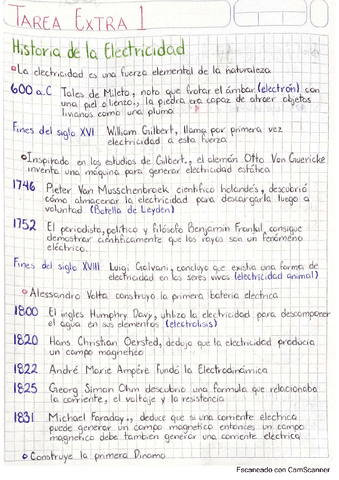 TAREA EXTRA 1
Historia de la Electricidad
La electricidad es una fuerza elemental de la naturaleza
600 a.C Tales de Mileto, noto que frotar el ámbar (electrón) con
una piel o lienzo, la piedra era capaz de atraer objetos
livianos como una pluma
Fines del siglo XVI William Gilbert, llama por primera vez
electricidad a esta fuerza
Inspirado en los estudios de Gilbert, el alemán Otto Von Guericke
inventa una máquina para generar electricidad estática
1746 Pieter Van Musschenbroek científico holandés, descubrió
cómo almacenar la electricidad para descargarla luego a
voluntad (Botella de Leyden)
1752 El periodista, político y filósofo Benjamin Franklul, consigue
demostrar científicamente que los rayos son un fenómeno
eléctrico.
Fines del siglo XVIII Luigi Galvani, concluyo que existía una forma de
electricidad en los seres vivos (electricidad animal)
Alessandro Volta construyo la primera bateria electrica
1800 El ingles Humphry Davy, utilizo la electricidad para descomponer
el agua en sus elementos (electrolisis)
1820 Hans Christian Oersted, dedujo que la electricidad producia
un campo magnetico
1822 André Marie Ampére fundó la Electrodinámica
1825 Georg Simon Ohm descubrio una formula que relacionaba
la corriente, el voltaje y la resistencia
1831 Michael Faraday., deduce que si una corriente electrica
puede generar un campo magnetico entonces un campo
magnetico debe tambien generar una corriente electrica
Construye la primera Dinamo
Escaneado con CamScanner